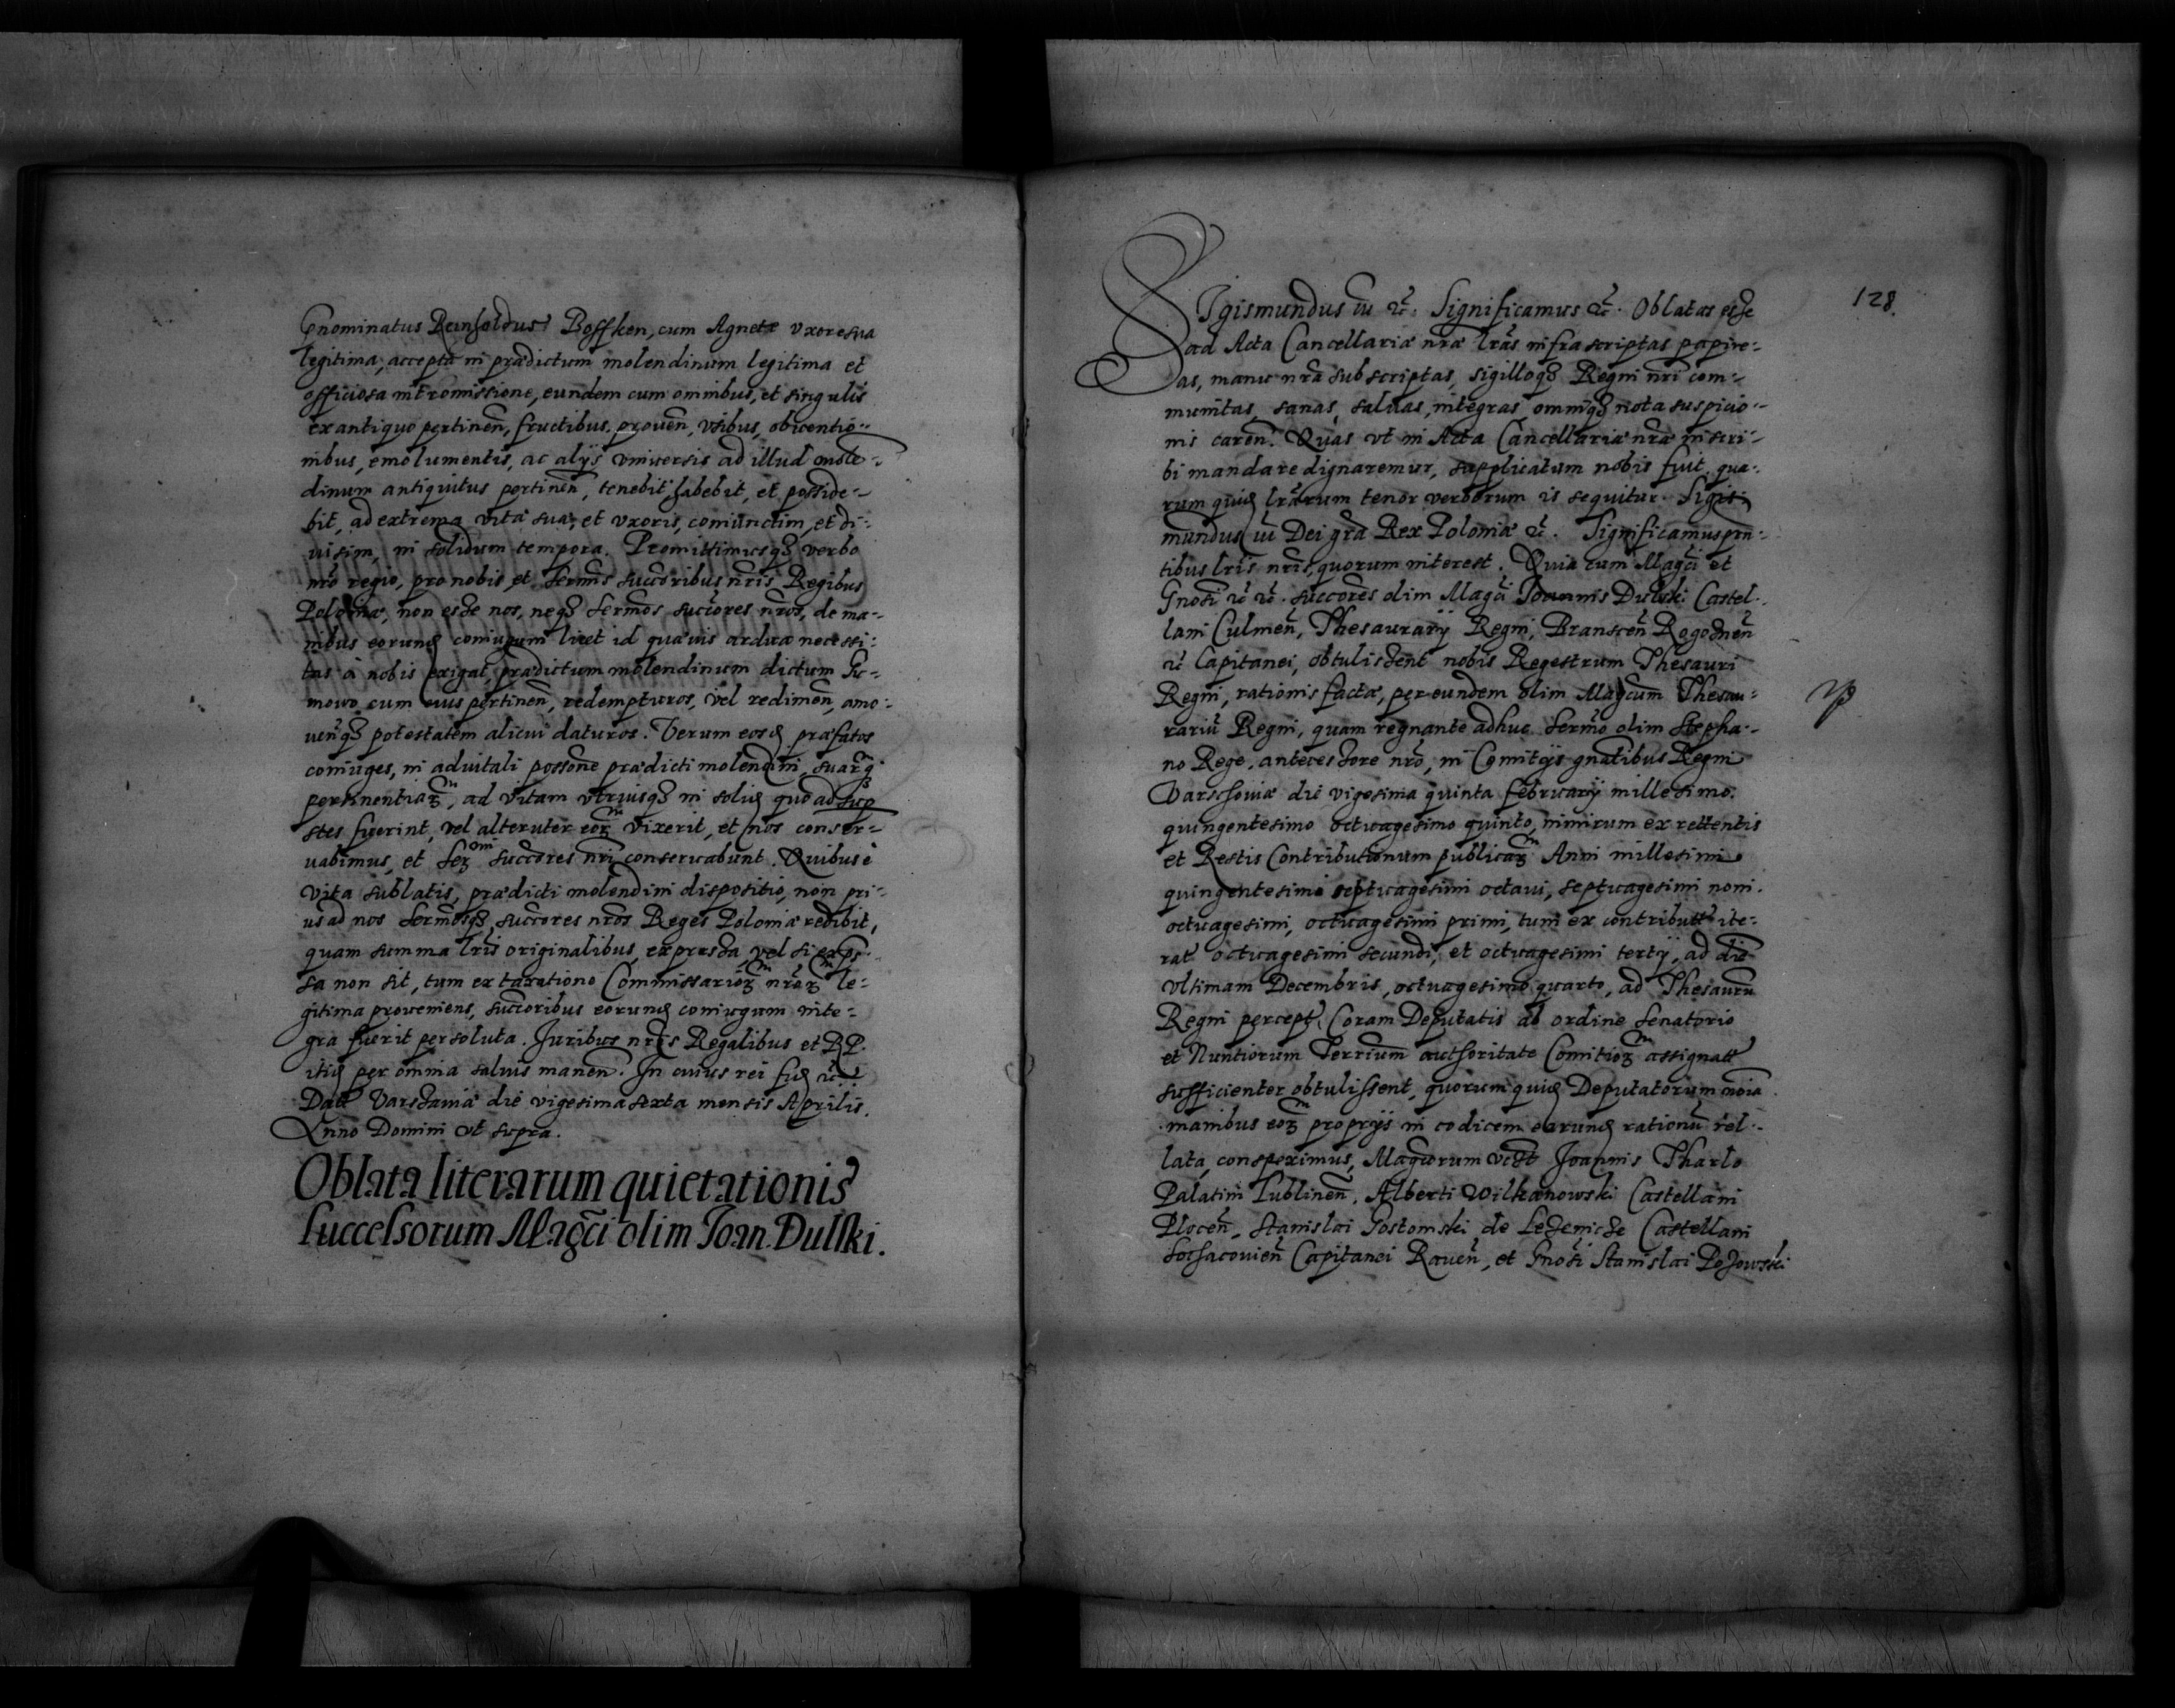 Gnominatus Reinholdus Boffken, cum Agnete vxore sua
legitima, accepta in prædictum molendinum legitima et
officiosa intromissione, eundem cum omnibus, et singulis
ex antiquo pertinen̄, fructibus, prouen̄, vsibus, obuentio-
nibus, emolumentis, ac alijs vniuersis ad illud mole-
dinum antiquitus pertinen̄, tenebit, habebit, et posside-
bit, ad extrema vitæ suæ, et vxoris, coniunctim, et di-
uisim, in solidum tempora. Promittimusqȝ verbo
nr̄o regio, pro nobis et Serm̄is succ̄oribus nr̄is Regibus
Poloniæ, non esse nos, neqȝ Serm̄os succ̄ores nr̄os, de ma-
nibus eorund coniugum licet id quæuis ardua necessi-
tas à nobis exigat, prædictum molendinum dictum Gr-
mowo cum eius pertinen̄, redempturos, vel redimen̄, amo-
uen̄qȝ potestatem alicui daturos. Verum eosd præfatos
coniuges, in aduitali poss̄one prædicti molendini, suarqȝ
pertinentiaꝝ, ad vitam vtriusqȝ in solid quoad sup̄
stes fuerint, vel alteruter eoꝝ vixerit, et nos conser-
uabimus, et Seꝝ succ̄ores nr̄i conseruabunt. Quibus è
vita sublatis, prædicti molendini dispositio, non pri-
us ad nos Serm̄osqȝ succ̄ores nr̄os Reges Poloniæ redibit,
quam summa lr̄is originalibus expressa, vel si exp̄s-
sa non sit, tum ex taxatione Commissarioꝝ nr̄oꝝ le-
gitima proueniens, succ̄oribus eorund coniugum inte-
gra fuerit persoluta. Juribus nr̄is Regalibus et RP.
itid per omnia saluis manen̄. In cuius rei fid ꝛc̄
Datt Varssauiæ die vigesima sexta mensis Aprilis.
Anno Domini vt supra.
Oblata literarum quietationis
successorum Mag̃ci olim Joan. Dulski.
128.
SIgismundus iii ꝛc̄. Significamus ꝛc̄. Oblatas esse
ad Acta Cancellariæ nr̄æ lr̄as infrascriptas papire-
as, manu nr̄a subscriptas, sigilloqȝ Regni nr̄i com-
munitas, sanas, saluas, integras, omniqȝ nota suspicio-
nis caren̄. Quas vt in Acta Cancellariæ nr̄æ inscri-
bi mandare dignaremur, supplicatum nobis fuit. qua-
rum quid lr̄arum tenor verborum is sequitur. Sigis-
mundus iii Dei gr̄a Rex Poloniæ ꝛc̄. Significamus prn̄-
tibus lr̄is nr̄is, quorum interest. Quia cum Mag̃ci et
Gnosi ꝛc̄ ꝛc̄. succ̄ores olim Mag̃ci Joannis Dulski Castel-
lani Culmen̄, Thesaurarij Regni, Branscen̄ Rogosnen̄
ꝛc̄ Capitanei, obtulissent nobis Regestrum Thesauri
Regni, rationis factæ, per eundem olim Mag̃cum Thesau-
rariū Regni, quam regnante adhuc Serm̄o olim Stepha-
no Rege, antecessore nr̄o, in Comitijs gnalibus Regni
Varschouiæ die vigesima quinta februarij millesimo
quingentesimo octuagesimo quinto, nimirum ex rettentis
et Restis Contributionum publicaꝝ Anni millesimi
quingentesimi septuagesimi octaui, septuagesimi noni.
octuagesimi, octuagesimi primi, tum ex contributt ite-
rat octuagesimi secundi, et octuagesimi tertij, ad diē
vltimam Decembris, octuagesimo quarto, ad Thesaurū
Regni percept, Coram Deputatis ab ordine Senatorio
et Nuntiorum Terrium authoritate Comitioꝝ assignatt
sufficienter obtulissent, quorum quid Deputatorum noīa
manibus eoꝝ proprijs in codicem earund rationū rel-
lata, conspeximus, Mag̃corum vidt Joannis Tharlo
Palatini Lublinen̄, Alberti Wilkanowski Castellani
Plocen̄, Stanislai Gostomski de Lezenicze Castellani
Sochacouien̄ Capitanei Rauen̄, et Gnosi Stanislai Pozowski